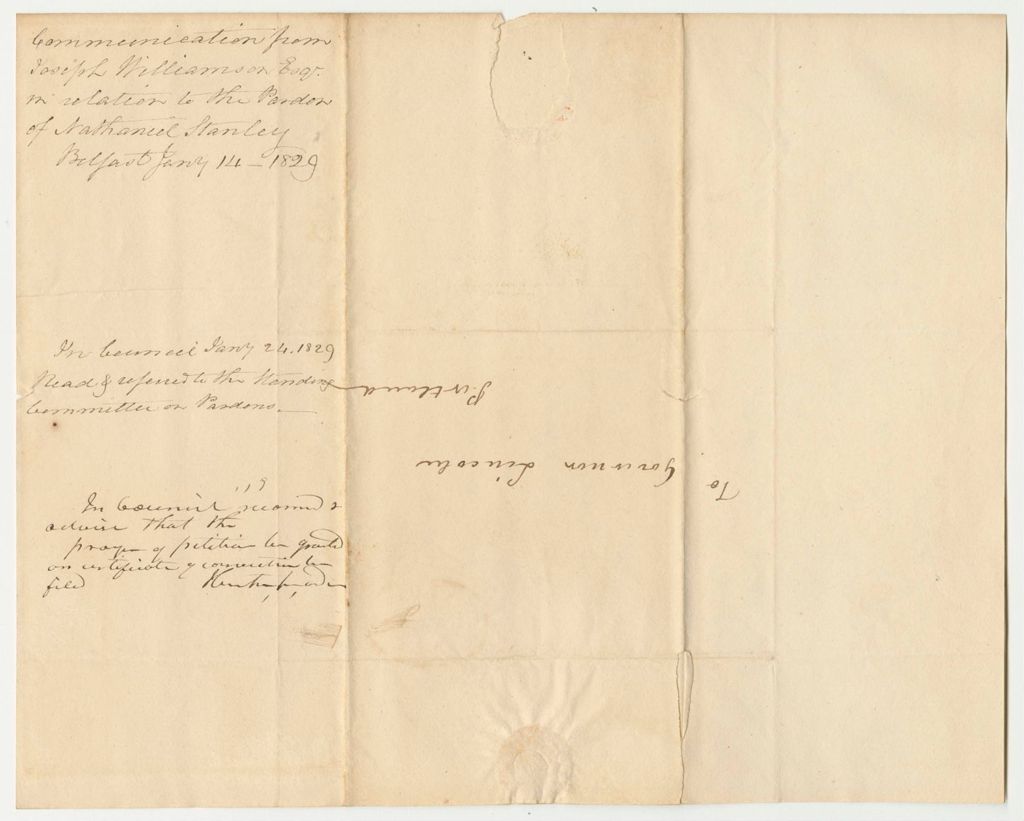 Communication from
Joseph Williamson Esqr.
in relation to the Pardon
of Nathaniel Stanley
Belfast Jany 14 – 1829
In Council Jany 24. 1829
Read & referred to the Standing
Committee on Pardons.
In Council
advise that the
prayer of petition be granted
on certificate of conviction be
filed
To
Governor Lincoln
Portland